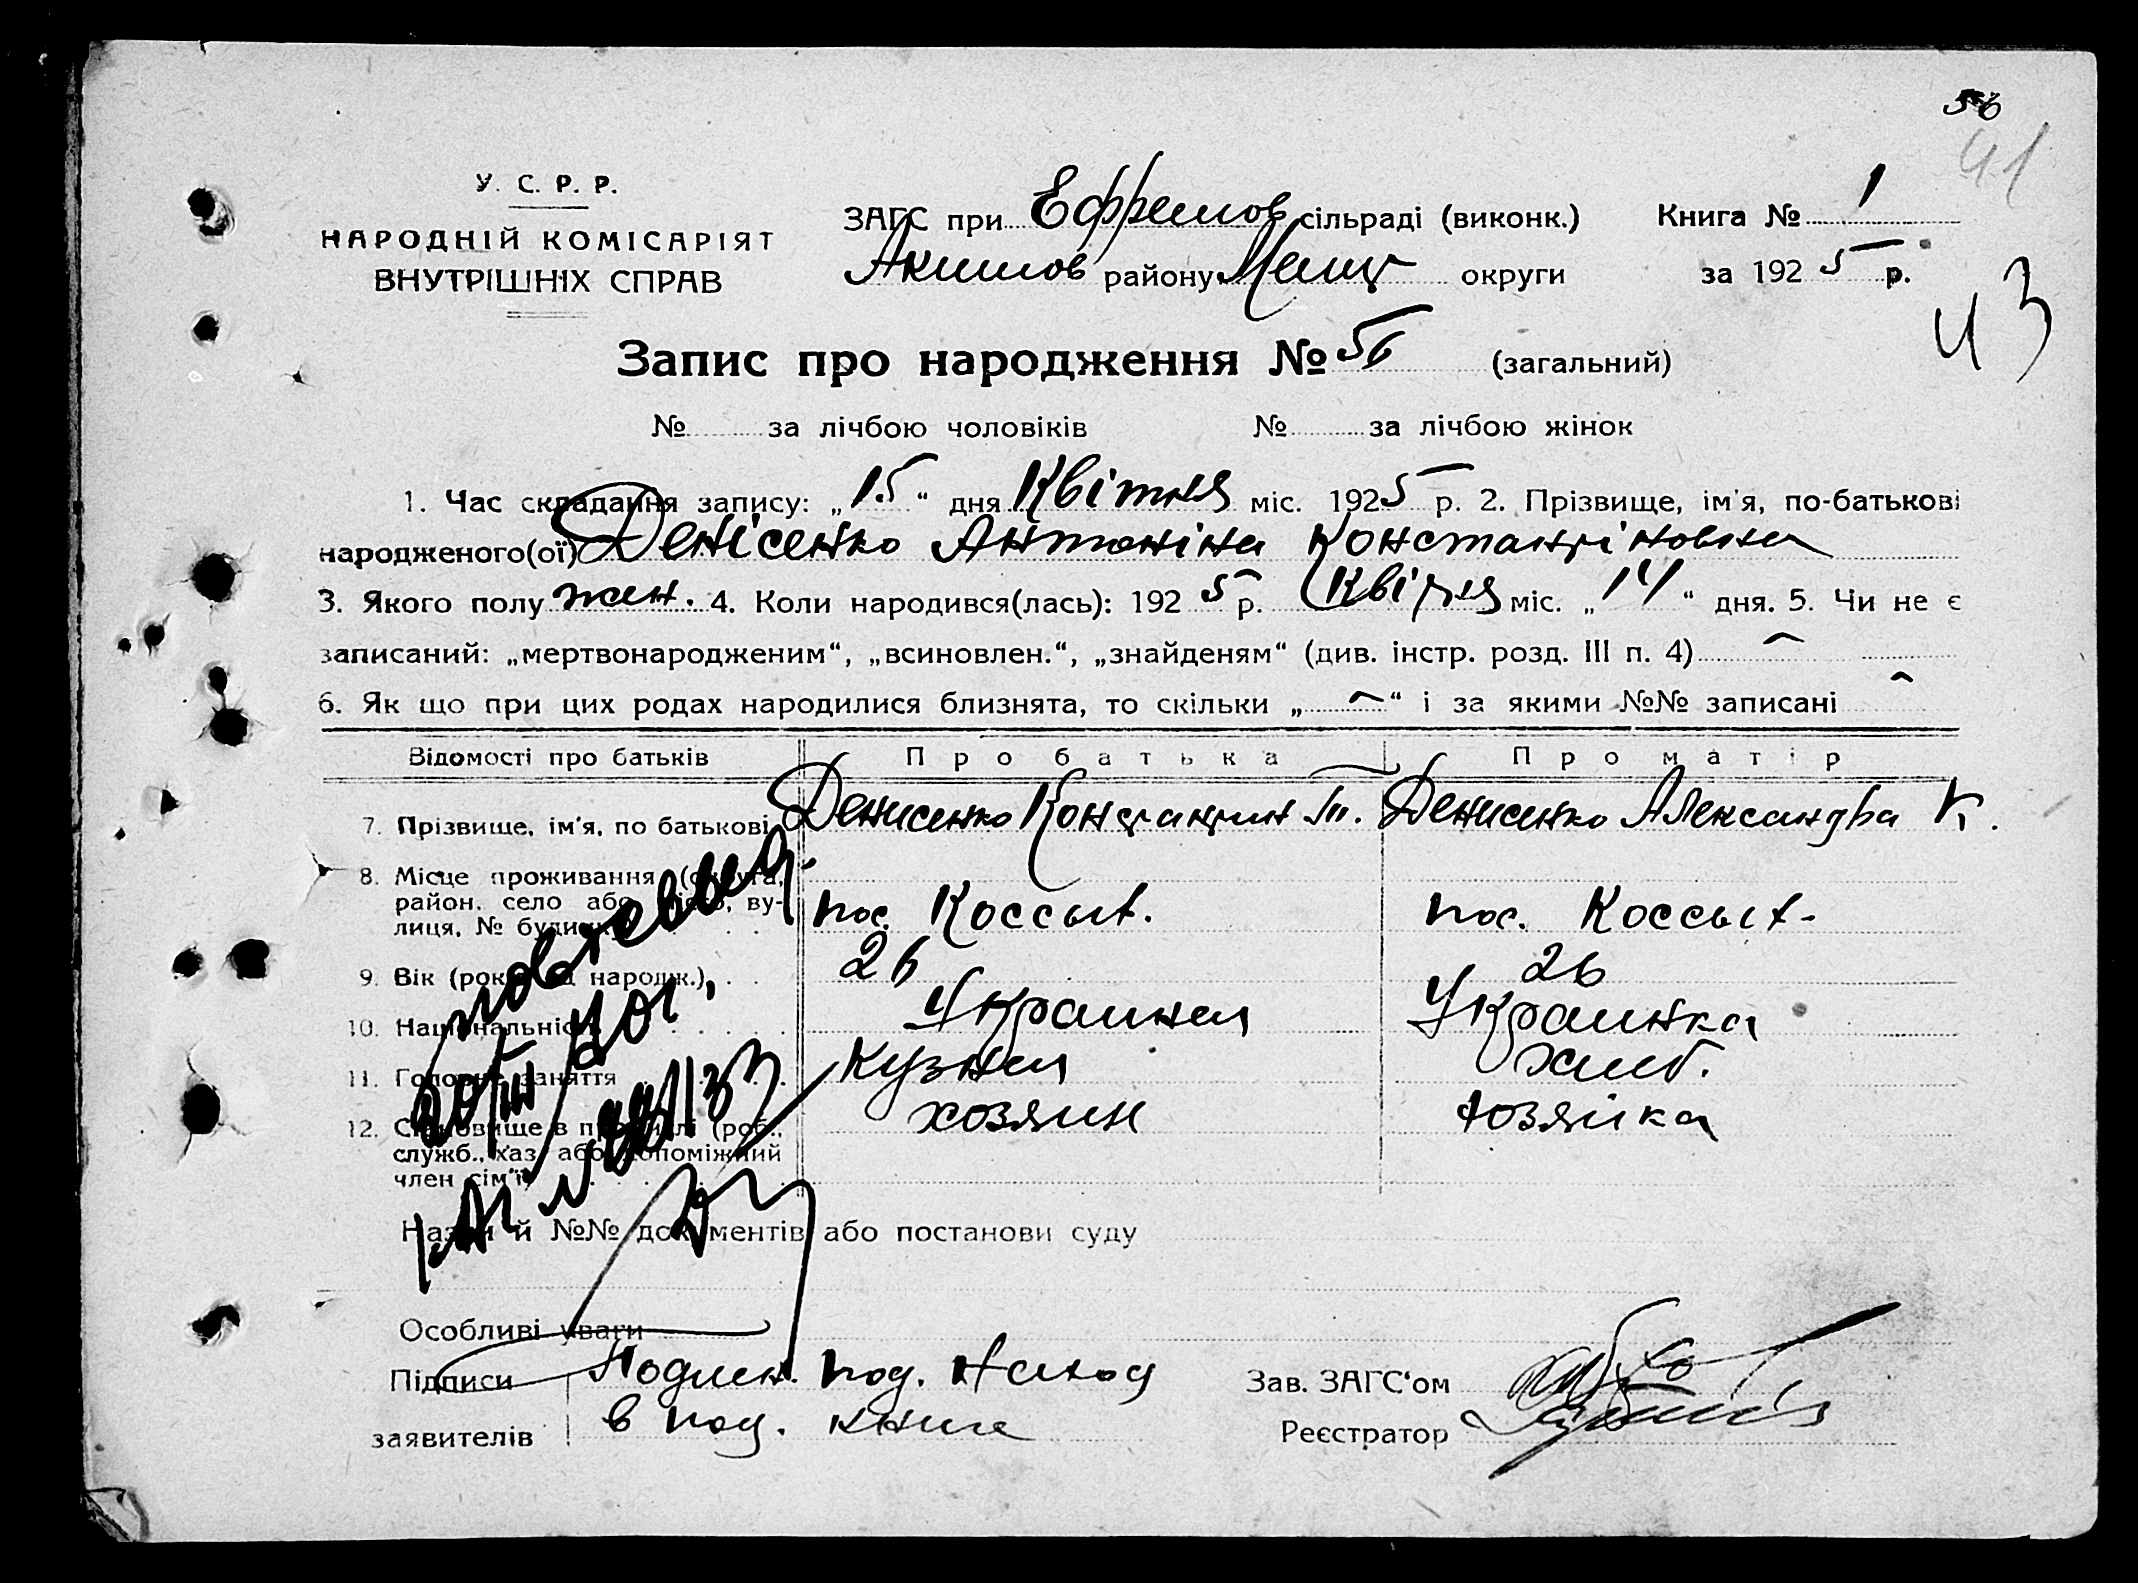 56
41
У. С. Р. Р.
НАРОДНІЙ КОМІСАРІЯТ
ВНУТРІШНІХ СПРАВ
ЗАГС при Ефремов сільраді (виконк.)
Акимов району Меліт округи
Книга № 1
за 1925 р.
43
Запис про народження № 56 (загальний)
№ за лічбою чоловіків № за лічбою жінок
1. Час складання запису: „15“ дня Квітня міс. 1925 р. 2. Прізвище, ім'я, по-батькові
народженого(ої) Денісенко Антоніна Константіновна
3. Якого полу жен. 4. Коли народився(лась): 1925 р. Квітня міс. „14“ дня. 5. Чи не є
записаний: „мертвонародженим“, „всиновлен.“, „знайденям“ (див. інстр. розд. III п. 4)
6. Як що при цих родах народилися близнята, то скільки „ “ і за якими №№ записані
Відомості про батьків Про батька Про матір
7. Прізвище, ім'я, по батькові Денисенко Константин Т. Денисенко Александра К.
8. Місце проживання (округа,
район, село або місто, ву-
лиця, № будинку) пос. Коссых. пос. Коссых.
9. Вік (років від народж.) 26 26
10. Національність Украинец Украинка
11. Головне заняття Кузнец хлеб.
12. Становище в промислі (роб.,
служб., хаз. або допоміжний
член сім'ї) хозяин хозяйка
повторное
Назви й №№ документів або постанови суду
Особливі уваги
Підписи
заявителів
Подлен. под. наход
в под. книге
Зав. ЗАГС'ом
Реєстратор